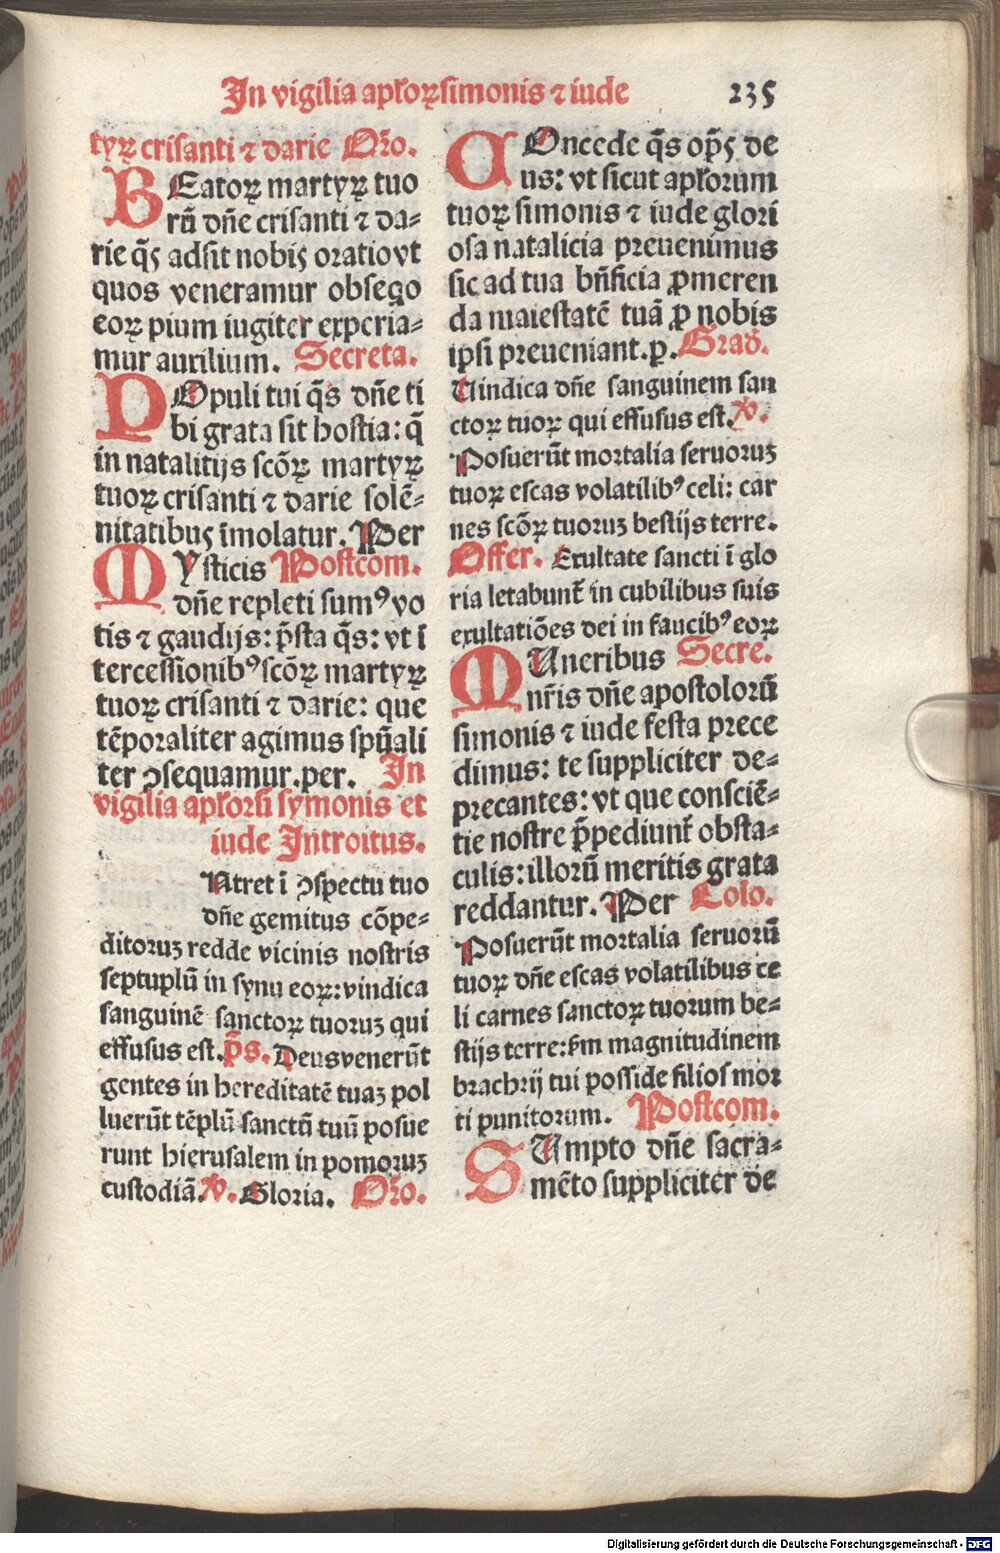 In vigilia apłoꝝ simonis ⁊ iude 235
tyꝝ crisanti ⁊ darie Oro.
BEatoꝝ martyꝝ tuo
rū dñe crisanti ⁊ da-
rie q̄ꝫ adsit nobis oratio vt
quos veneramur obseqo
eoꝝ pium iugiter experia-
mur auxilium. Secreta.
POpuli tui q̄s dñe ti
bi grata sit hostia: q̄
in natalitijs scōꝝ martyꝝ
tuoꝝ crisanti ⁊ darie solē-
nitatibus īmolatur. Per
MYsticis Postcom.
dñe repleti sumꝰ vo
tis ⁊ gaudijs: p̄sta q̄s: vt ī
tercessionibꝰ scōꝝ martyꝝ
tuoꝝ crisanti ⁊ darie: que
tēporaliter agimus spūali
ter ꝯsequamur. per. In
vigilia apłorū symonis et
iude Introitus.
INtret ī ꝯspectu tuo
dñe gemitus cōpe-
ditoruꝫ redde vicinis nostris
septuplū in synu eoꝝ: vindica
sanguinē sanctoꝝ tuoruꝫ qui
effusus est. p̄s. Deus venerūt
gentes in hereditatē tuaꝫ pol
luerūt tēplū sanctū tuū posue
runt hierusalem in pomoruꝫ
custodiā. ꝟ. Gloria. Oro.
COncede q̄s op̄ꝫ de
us: vt sicut apłorum
tuoꝝ simonis ⁊ iude glori
osa natalicia preuenimus
sic ad tua bñficia ꝓmeren
da maiestatē tuā ꝓ nobis
ipsi preueniant. p. Grad.
Uindica dñe sanguinem san
ctoꝝ tuoꝝ qui effusus est. ꝟ.
Posuerūt mortalia seruoruꝫ
tuoꝝ escas volatilibꝰ celi: car
nes scōꝝ tuoruꝫ bestijs terre.
Offer. Exultate sancti ī glo
ria letabunt̄ in cubilibus suis
exultatiōes dei in faucibꝰ eoꝝ
MUneribus Secre.
nr̄is dñe apostolorū
simonis ⁊ iude festa prece
dimus: te suppliciter de-
precantes: vt que consciē-
tie nostre p̄pediunt̄ obsta-
culis: illorū meritis grata
reddantur. Per Colo.
Posuerūt mortalia seruorū
tuoꝝ dñe escas volatilibus ce
li carnes sanctoꝝ tuorum be-
stijs terre: ẜm magnitudinem
brachrij tui posside filios mor
ti punitorum. Postcom.
SUmpto dñe sacra-
mēto suppliciter de
Digitalisierung gefördert durch die Deutsche Forschungsgemeinschaft - DFG